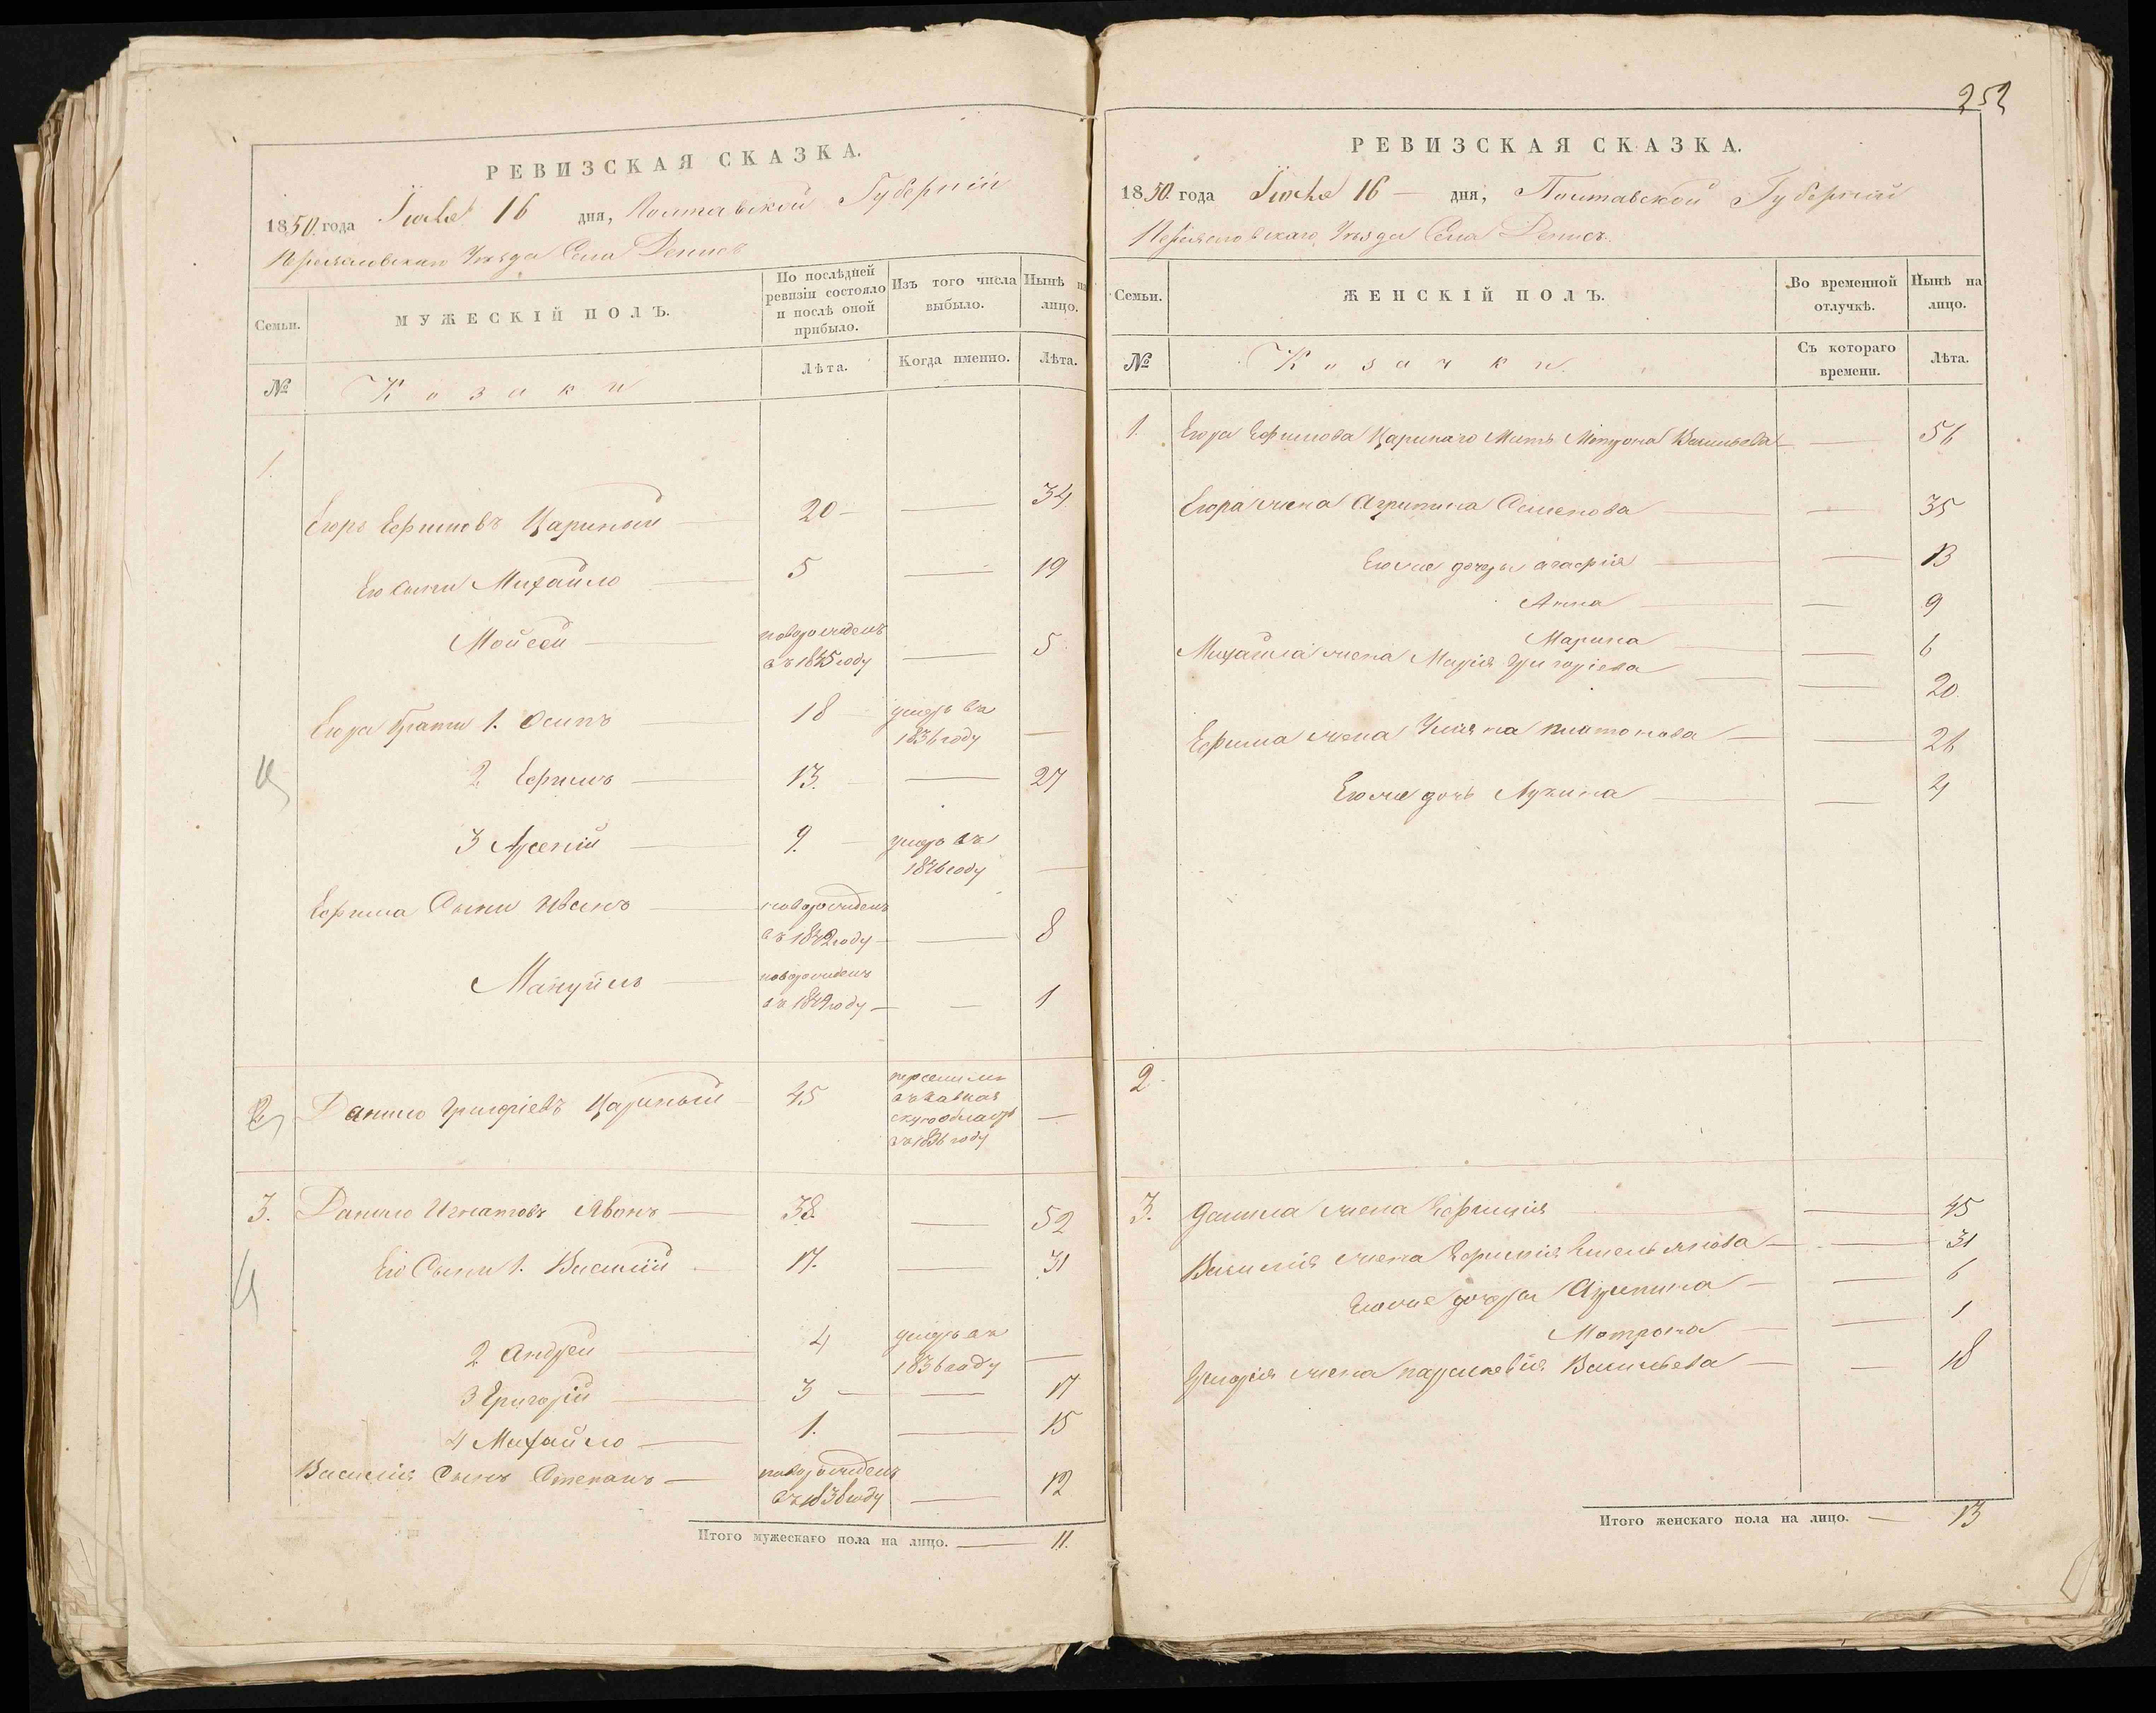 РЕВИЗСКАЯ СКАЗКА.
1850 года Іюня 16 дня, Полтавской Губерніи
Переяславскаго Уѣзда Села Денисъ
Семьи.
МУЖЕСКІЙ ПОЛЪ.
По послѣдней ревизіи состояло и послѣ оной прибыло.
Изъ того числа выбыло.
Нынѣ на лицо.
№
Козаки
Лѣта.
Когда именно.
Лѣта.
1.
Егоръ Ефимовъ Цариный 20 — 34
Его сыны Михайло 5 — 19
Мойсей новорожденъ въ 1845 году — 5
Егора браты 1. Осипъ 18 умеръ въ 1836 году —
2 Ефимъ 13. — 27
3 Арсеній 9. умеръ въ 1846 году —
Ефима Сыны Иванъ новорожденъ въ 1842 году — 8
Мануйлъ новорожденъ въ 1849 году — 1
2 Данило Григоріевъ Цариный 45 переселился въ Кавказскую область въ 1836 году —
3. Данило Игнатовъ 38. — 52
Его Сыны 1. Василій 17. — 31
2 Андрей 4 умеръ въ 1836 году —
3 Григорій 3 — 17
4 Михайло 1. — 15
Василія Сынъ Степанъ новорожденъ въ 1838 году — 12
Итого мужескаго пола на лицо. — 11.
252
РЕВИЗСКАЯ СКАЗКА.
1850. года Іюня 16 — дня, Полтавской Губерніи
Переяславскаго Уѣзда Села Денисъ.
Семьи.
ЖЕНСКІЙ ПОЛЪ.
Во временной отлучкѣ.
Нынѣ на лицо.
№
Козачки
Съ котораго времени.
Лѣта.
1. Егора Ефимова Царинаго Мать Мотрона Васильева — 56
Егора жена Агрипина Семенова — 35
Его же дочеры Агафія — 13
Анна — 9
Марина — 6
Михайла жена Марія Григоріева — 20.
Ефима жена Уляна Платонова — 26
Его же дочь Лукина — 4
2.
3. Данила жена Ефимія — 45
Василія жена Ефимія Емельянова — 31
Его же дочеры Агрипина — 6
Мотрона — 1
Григорія жена Параскевія Васильева — 18
Итого женскаго пола на лицо. — 13